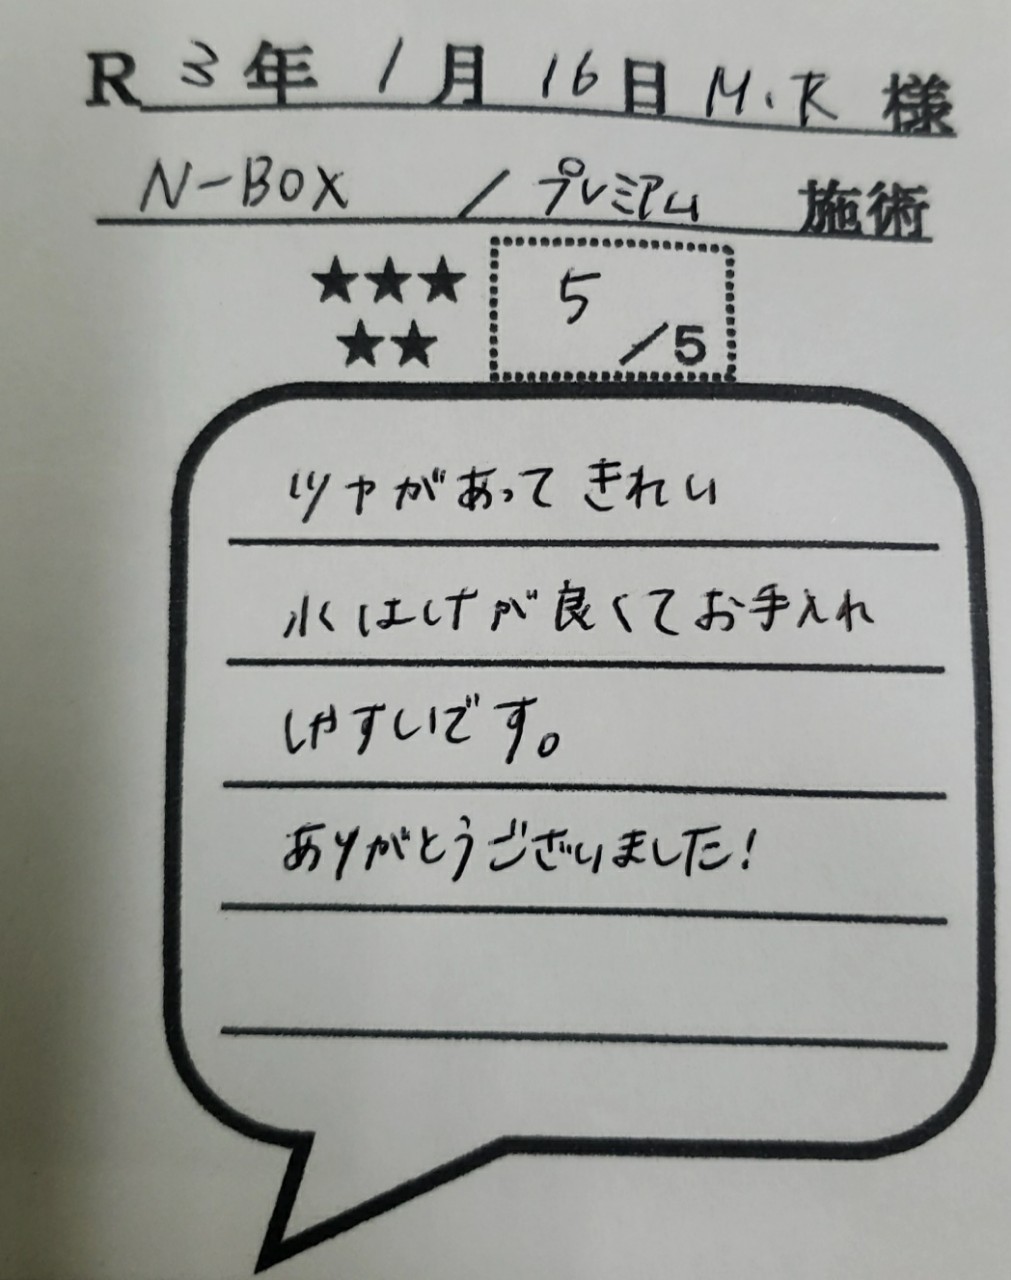 R 3年 1月 16日 M.K 様
N-BOX / プレミアム 施術
★★★
★★
5
/5
ツヤがあってきれい
水はけが良くてお手入れ
しやすいです。
ありがとうございました!